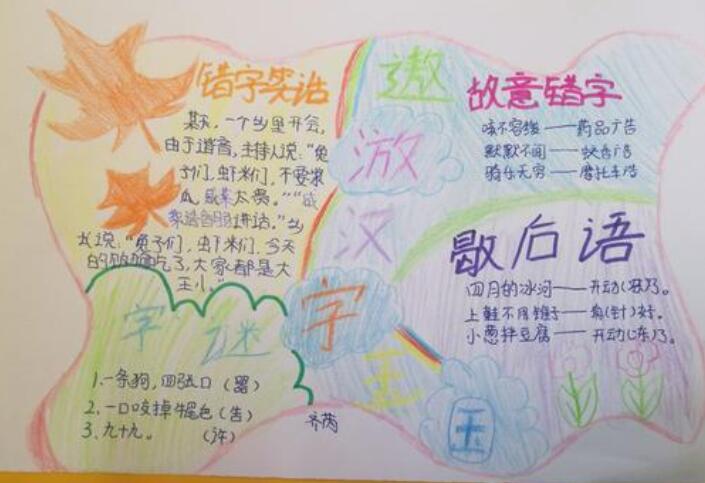 错字笑话
某天，一个乡里开会，
由于谐音，主持人说：“兔
子们，虾米们，不要酱
瓜，咸菜太贵。”“咸
菜请香肠讲话。”乡
长说：“兔子们，虾米们，今天
吃了，大家都是大
王八。”
遨
游
汉
字
王
王
国
故意错字
咳不容缓——药品广告
默默不闻——蚊香广告
骑乐无穷——摩托车
歇后语
四月的冰河——开动(冻)了。
上鞋不用锥子——(针)好。
小葱拌豆腐——
字谜
1.一条狗，四张口（器）
2.一口咬掉牛尾巴（告）
3.九十九。（白）
齐芮